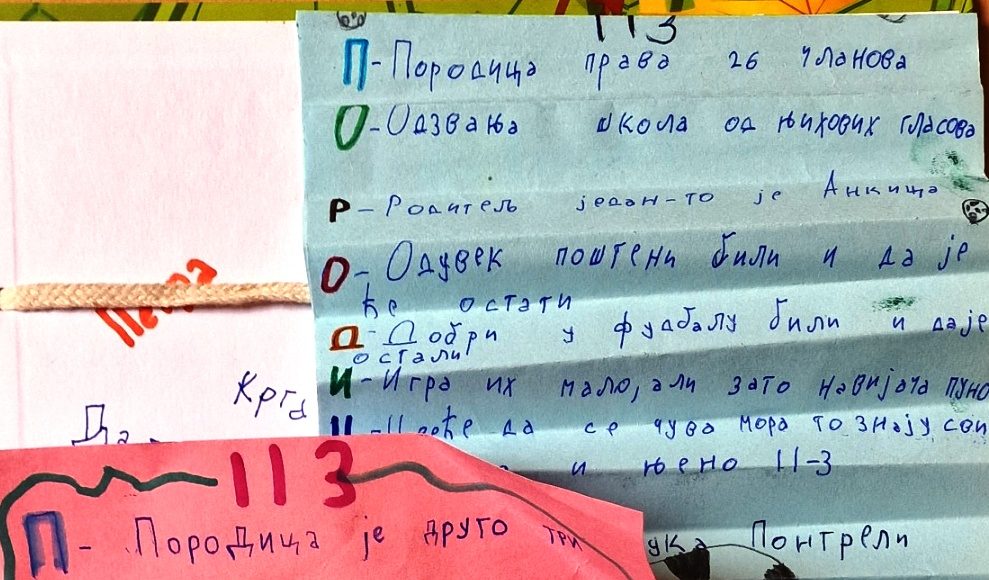 113
П-Породица права 26 чланова
О-Одзвања школа од њихових гласова
Р-Родитељ један-то је Анкица
О-Одувек поштени били и да је
ће остати
Д-Добри у фудбалу били и даје
остали
И-Игра их мало, али зато навијача пуно
да се чува мора то знају сви
и њено II-3
Понтрели
Петра
Крга
113
П- Породица је друго три